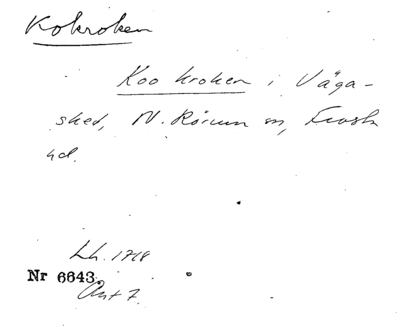 Kokroken
Koo kroken i Våga-
sked, N. Rörum sn, Frosta
hd.
Lh. 1718
Nr 6643.
Akt 7.